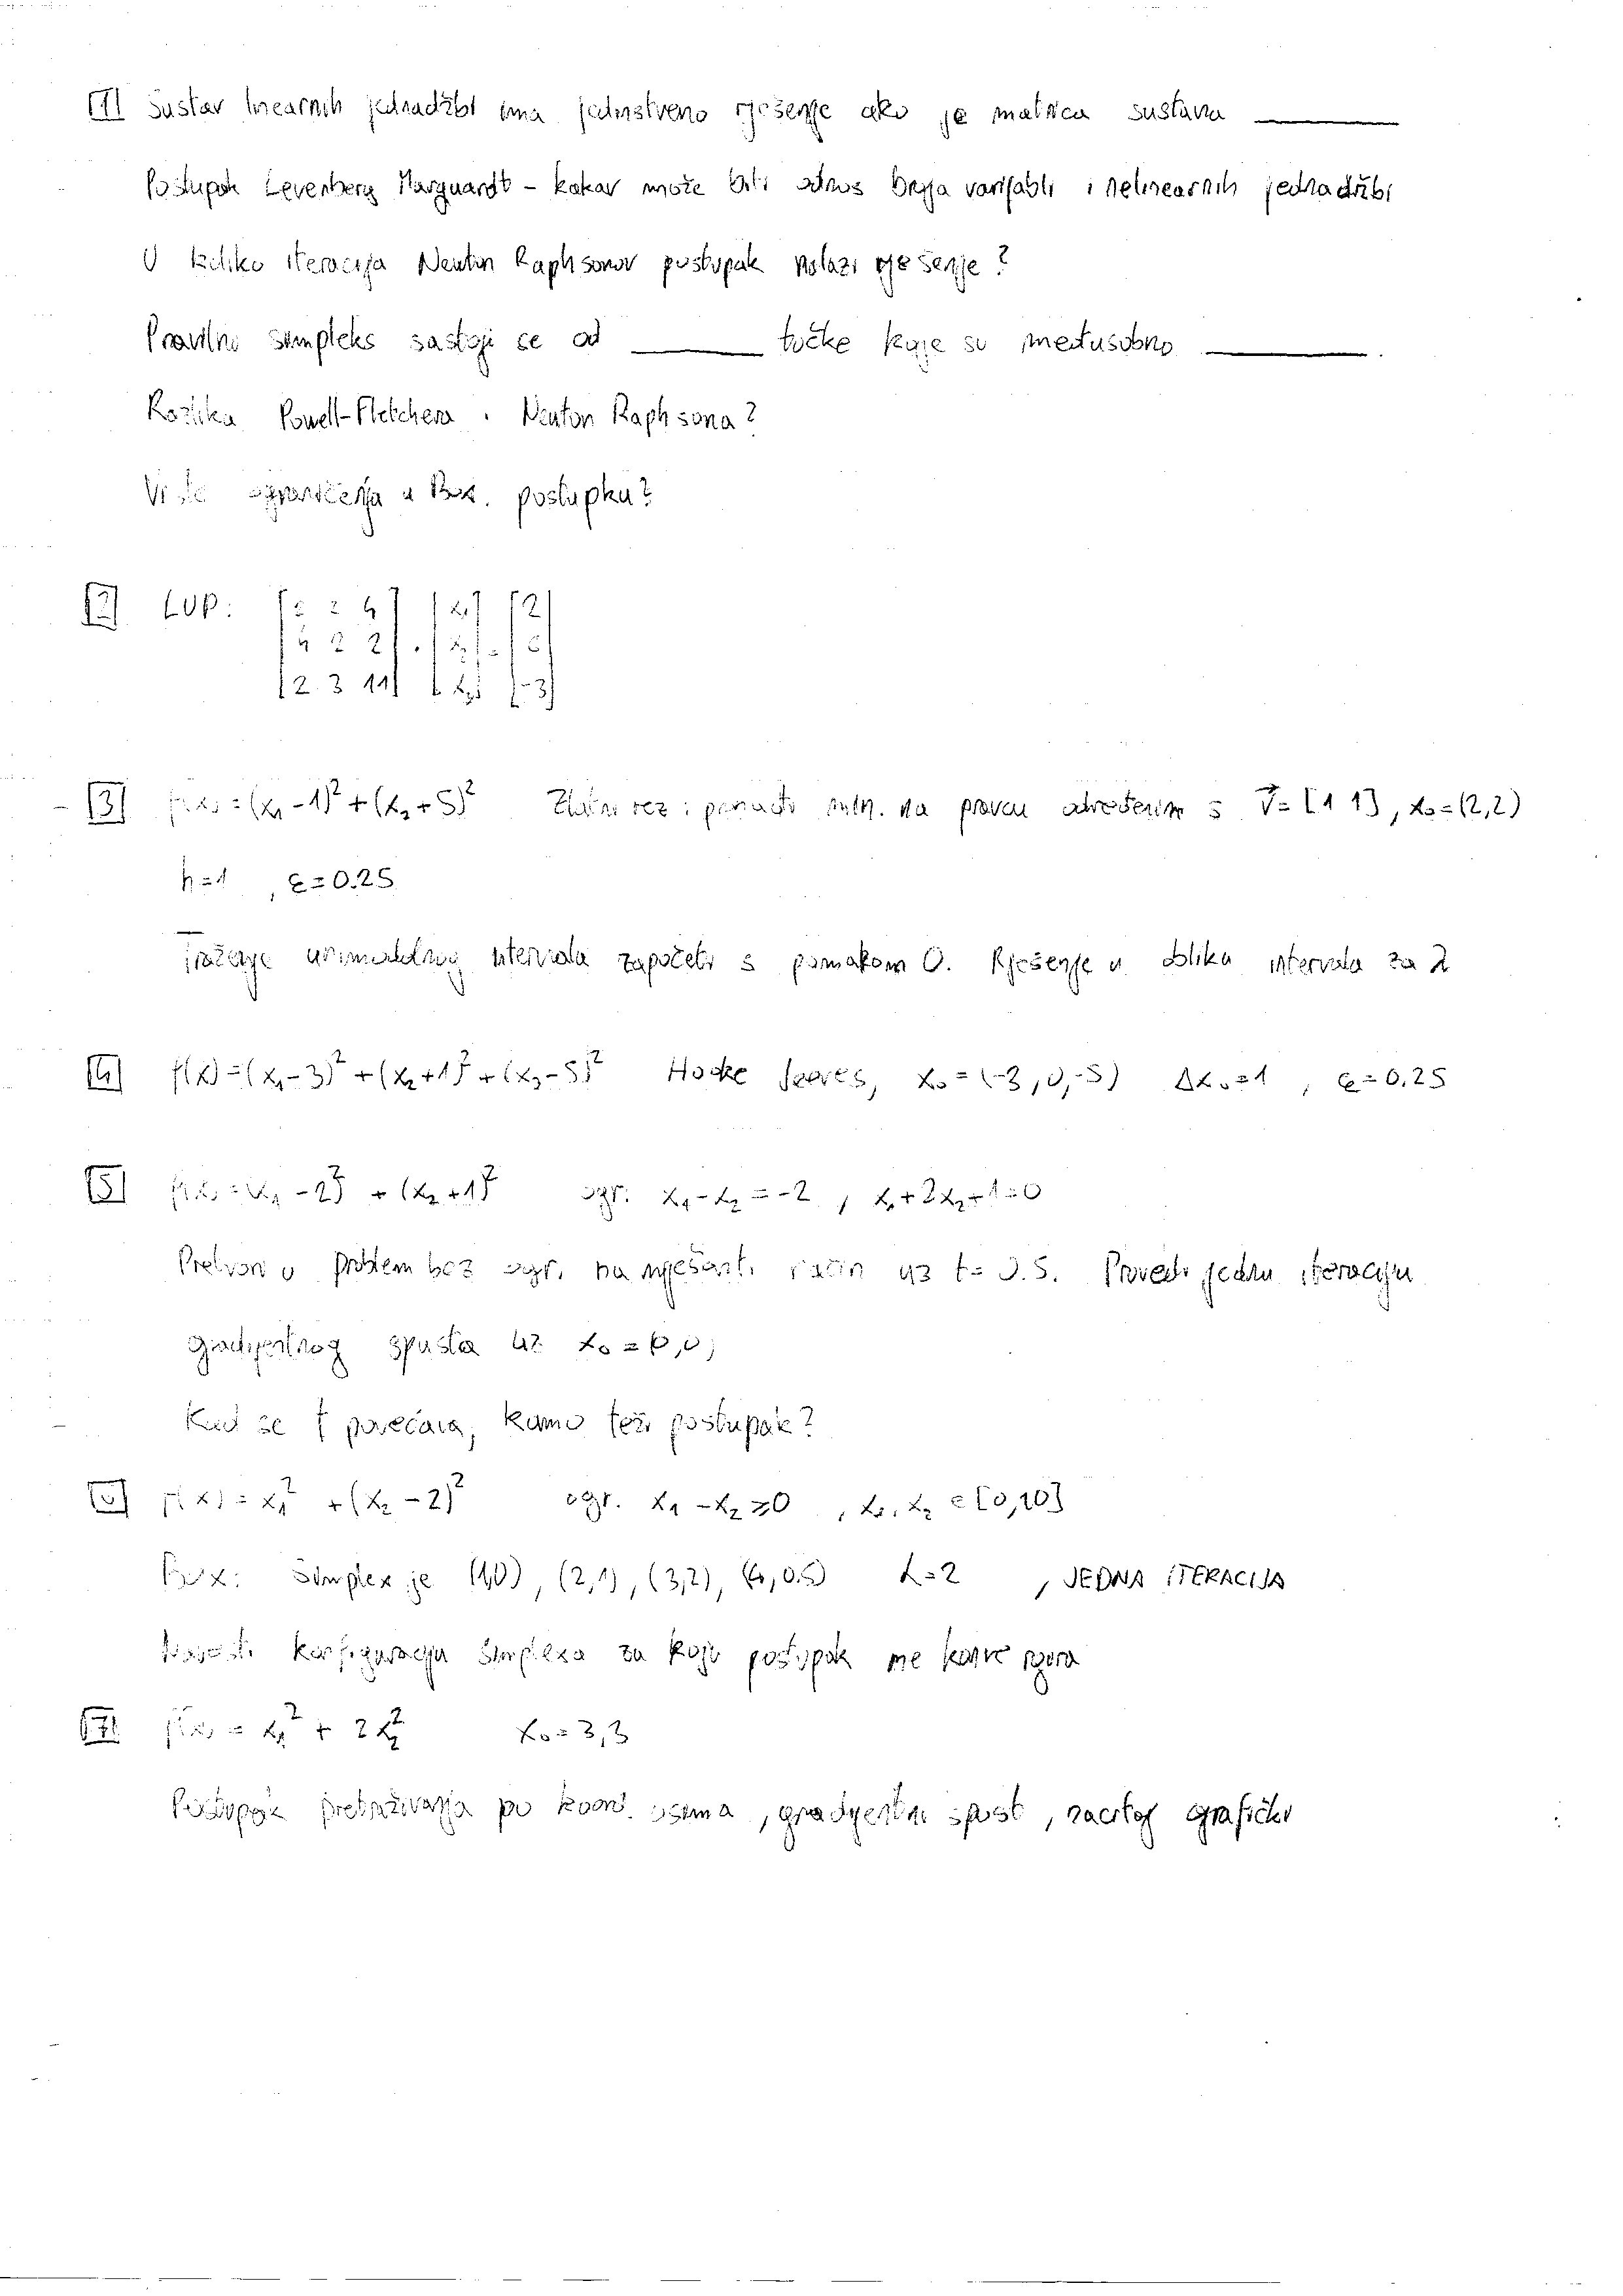 [1] Sustav linearnih jednadžbi ima jedinstveno rješenje ako je matrica sustava ______
Postupak Levenberg Marquardt - kakav može biti odnos broja varijabli i nelinearnih jednadžbi
U koliko iteracija Newton Raphsonov postupak nalazi rješenje?
Pravilni simpleks sastoji se od ______ točke koje su međusobno ______.
Razlika Powell-Fletchera i Newton Raphsona?
ograničenja u Box. postupku?
[2] LUP:
2 4 x1 2
4 2 2 · x2 =
2 3 11 x3 -3
[3] f(x) = (x1 - 1)² + (x2 + 5)² Zlatni rez i pronaći min. na pravcu određenim s v = [1 1], x0 = (2,2)
h = 1, ε = 0.25
Traženje unimodalnog intervala započeti s pomakom 0. Rješenje u obliku intervala za λ
[4] f(x) = (x1 - 3)² + (x2 + 1)² + (x3 - 5)² Hooke Jeeves, x0 = (-3, 0, -5) Δx0 = 1, ε = 0.25
[5] f(x) = (x1 - 2)² + (x2 + 1)² ogr: x1 - x2 = -2, x1 + 2x2 + 1 = 0
Pretvori u problem bez ogr. na mješoviti način uz t = 0.5. Provedi jednu iteraciju
gradijentnog spusta uz x0 = (0,0)
Kad se t povećava, kamo teži postupak?
[6] f(x) = x1² + (x2 - 2)² ogr. x1 - x2 ≥ 0, x1, x2 ∈ [0,10]
Box: Simplex je (1,0), (2,1), (3,2), (4,0.5) α = 2, JEDNA ITERACIJA
konfiguraciju simplexa za koju postupak ne
[7] f(x) = x1² + 2x2² x0 = 3,3
Postupak pretraživanja po koord. osima, gradijentni spust, nacrtaj grafički